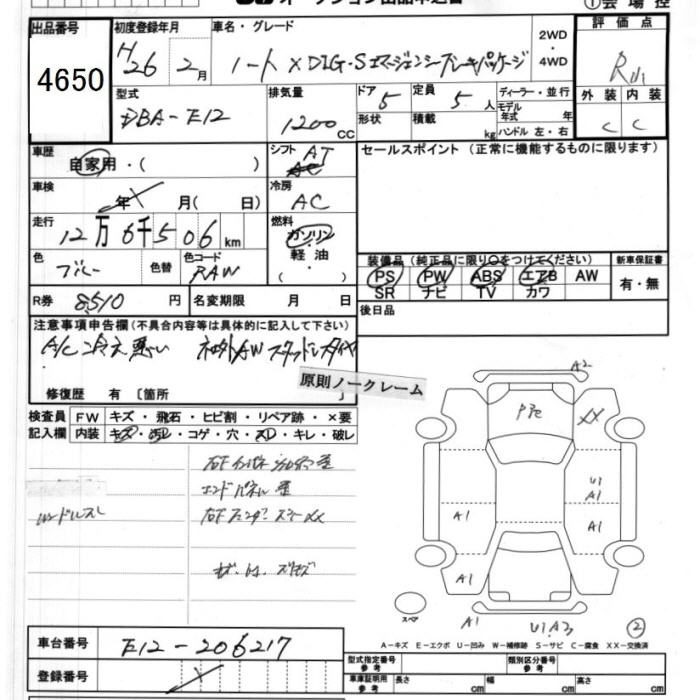 ①会場控
出品番号 初度登録年月 車名・グレード 2WD・4WD 評価点
4650 H26 2月 ノート X DIG-S エマージェンシーブレーキパッケージ
外装 内装
C C
型式 排気量 ドア 定員 ディーラー・並行
DBA-E12 1200cc 5 5人
形状 積載 kg モデル年式 年式 ハンドル 左・右
車歴 シフト セールスポイント (正常に機能するものに限ります)
自家用・( ) AT
車検 冷房
年 月( 日) AC
走行 燃料
12万6千506km ガソリン・軽油( )
色 色替 色コード 装備品(純正品に限り○をつけてください) 新車保証書
ブルー RAW PS PW ABS エアB AW 有・無
SR ナビ TV カワ
R券 8,510円 名変期限 月 日 後日品
注意事項申告欄(不具合内容等は具体的に記入して下さい)
A/C冷え悪い 社外AW スタッドレスタイヤ
原則ノークレーム
修復歴 有〔箇所 〕
検査員記入欄 FW キズ・飛石・ヒビ割・リペア跡・×要
内装 キズ・汚レ・コゲ・穴・スレ・キレ・破レ
エンドパネル
A2
XX
U1
A1
A1
A1
A1
A1
U1.A3
②
スペア
A-キズ E-エクボ U-凹み W-補修跡 S-サビ C-腐食 XX-交換済
車台番号 E12-206217
登録番号
型式指定番号 参考 類別区分番号 参考
車庫証明用 参考 長さ cm 幅 cm 高さ cm